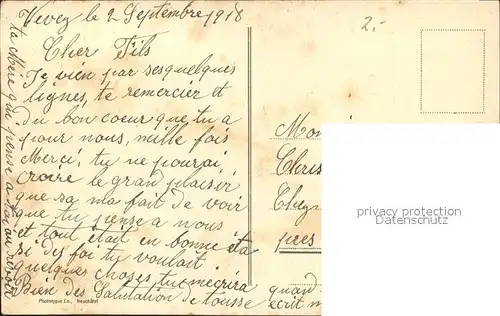 Vevez le 2 Septembre 1918
2.-
Cher Fils
Je vien par sesquelques
lignes, te remercier et
du bon coeur que tu a
pour nous, mille fois
Merci, tu ne pourai
croire le grand plaisir
que sa ma fait de voir
que tu pense a nous
et tout était en bonne éta
si des foi tu voulait
quelques choses tu mécrira
Bien des Salutation de tousse
ta Mère qui pense a toi au revoir
Phototypie Co., Neuchâtel
Mon
Chris
Chez
pres
quand
écrit m
privacy protection
Datenschutz